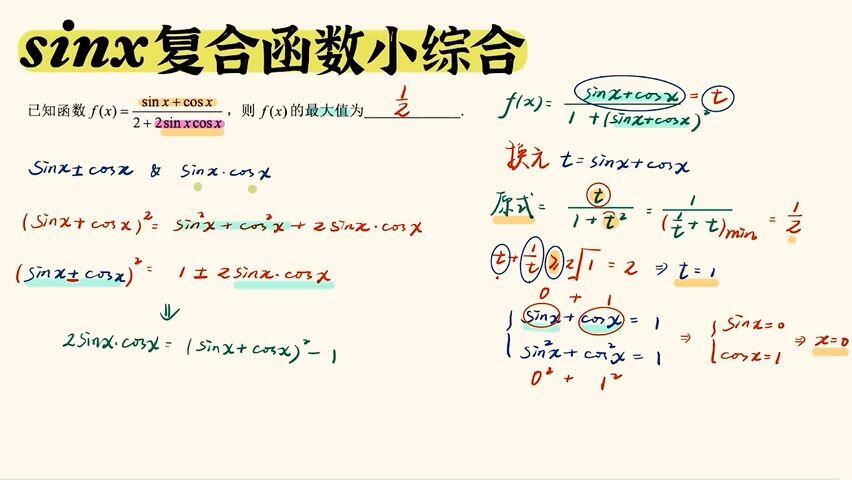 sinx复合函数小综合
已知函数 f(x)=(sin x+cos x)/(2+2sin x cos x)，则 f(x) 的最大值为 1/2 .
sinx±cosx & sinx·cosx
(sinx+cosx)²= sin²x+cos²x+2sinx·cosx
(sinx±cosx)²= 1±2sinx·cosx
⇓
2sinx·cosx=(sinx+cosx)²-1
f(x)= (sinx+cosx)/(1+(sinx+cosx)²) = t
换元 t=sinx+cosx
原式= t/(1+t²) = 1/(1/t+t)min = 1/2
t+1/t ≥2√1 =2 ⇒ t=1
0 + 1
{ sinx+cosx=1 ⇒ { sinx=0 ⇒ x=0
sin²x+cos²x=1 cosx=1
0² + 1²